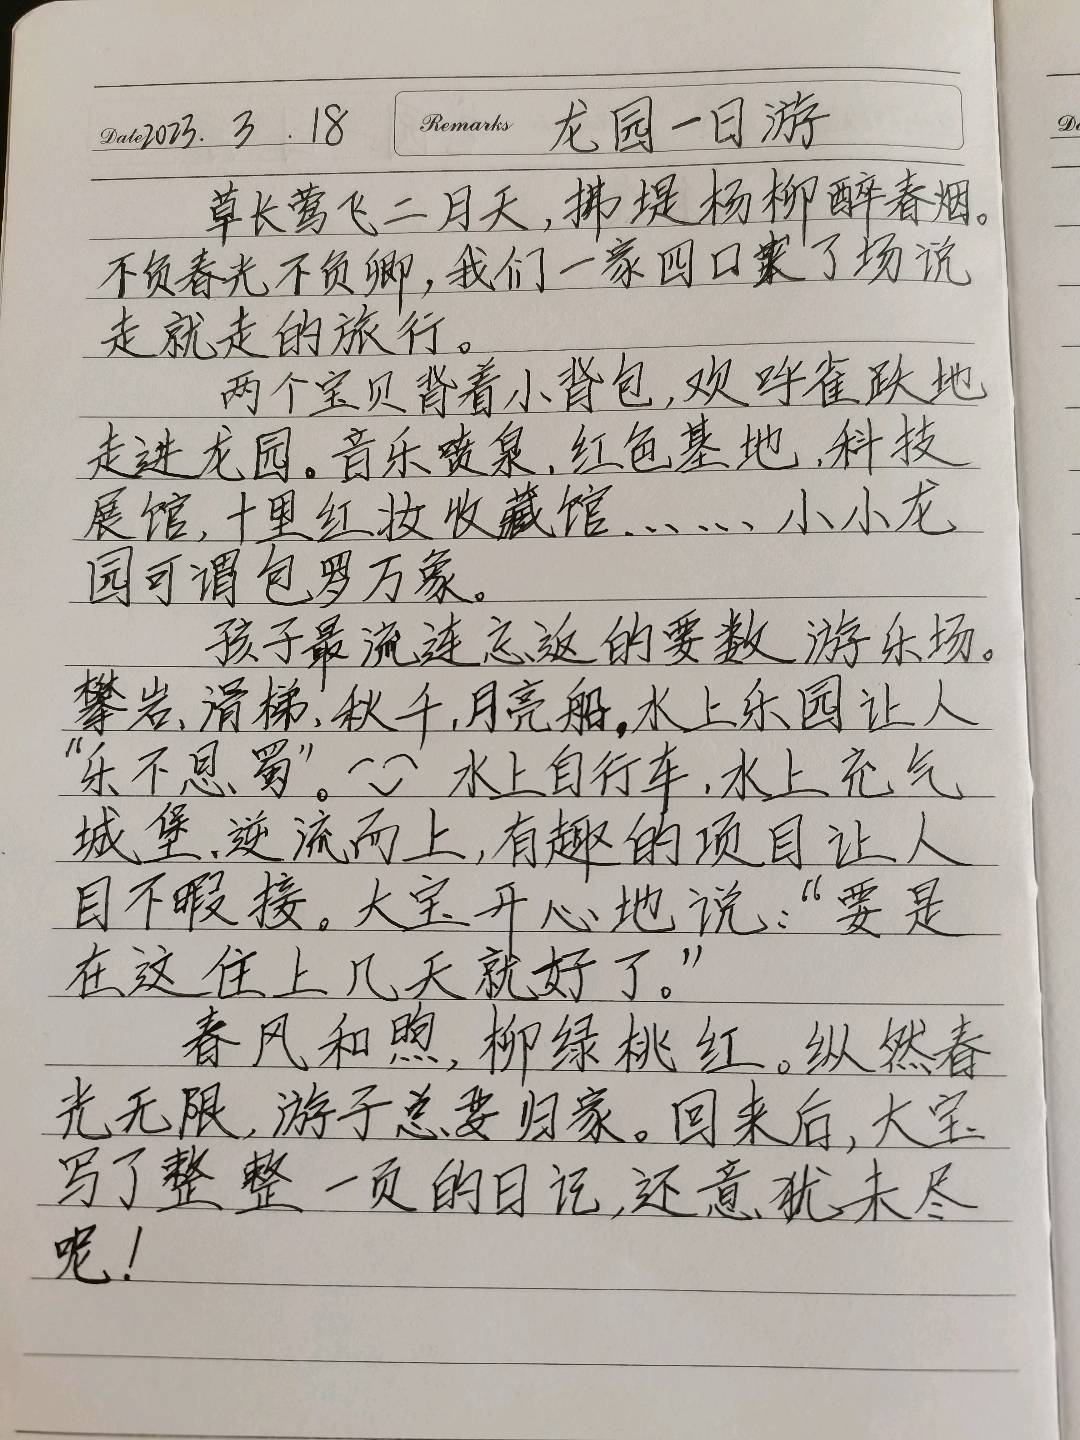 Date 2023. 3. 18 Remarks 龙园一日游
草长莺飞二月天,拂堤杨柳醉春烟。
不负春光不负卿,我们一家四口来了场说
走就走的旅行。
两个宝贝背着小背包,欢呼雀跃地
走进龙园。音乐喷泉、红色基地、科技
展馆、十里红妆收藏馆……小小龙
园可谓包罗万象。
孩子最流连忘返的要数游乐场。
攀岩、滑梯、秋千、月亮船。水上乐园让人
“乐不思蜀”。水上自行车、水上充气
城堡、逆流而上,有趣的项目让人
目不暇接。大宝开心地说:“要是
在这住上几天就好了。”
春风和煦,柳绿桃红。纵然春
光无限,游子总要归家。回来后,大宝
写了整整一页的日记,还意犹未尽
呢!